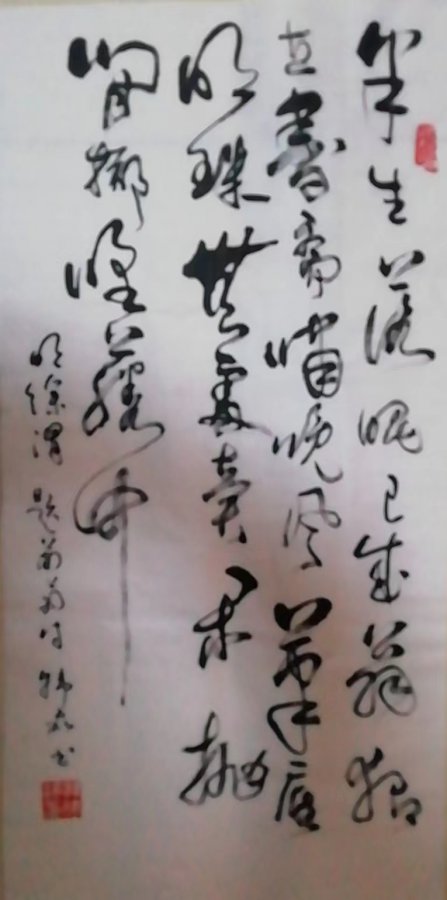 半生落魄已成翁独
立书斋啸晚风笔底
明珠无处卖闲抛
闲掷野藤中
明徐渭题葡萄诗 书